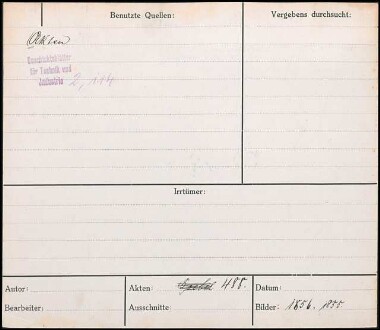 Benutzte Quellen:
Vergebens durchsucht:
Akten
Geschichtsblätter
für Technik und
Industrie
2, 114
Irrtümer:
Autor:
Akten: 488.
Datum:
Bearbeiter:
Ausschnitte:
Bilder: 1856. 1855.